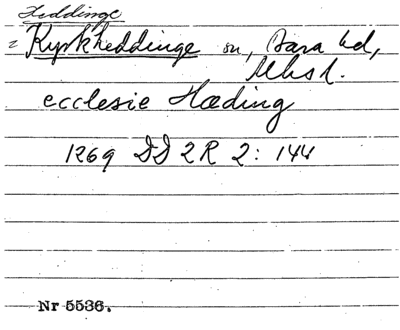 Heddinge
= Kyrkheddinge sn, Bara hd,
Mhsl.
ecclesie Hæding
1269 DD 2R 2: 144
Nr 5536.